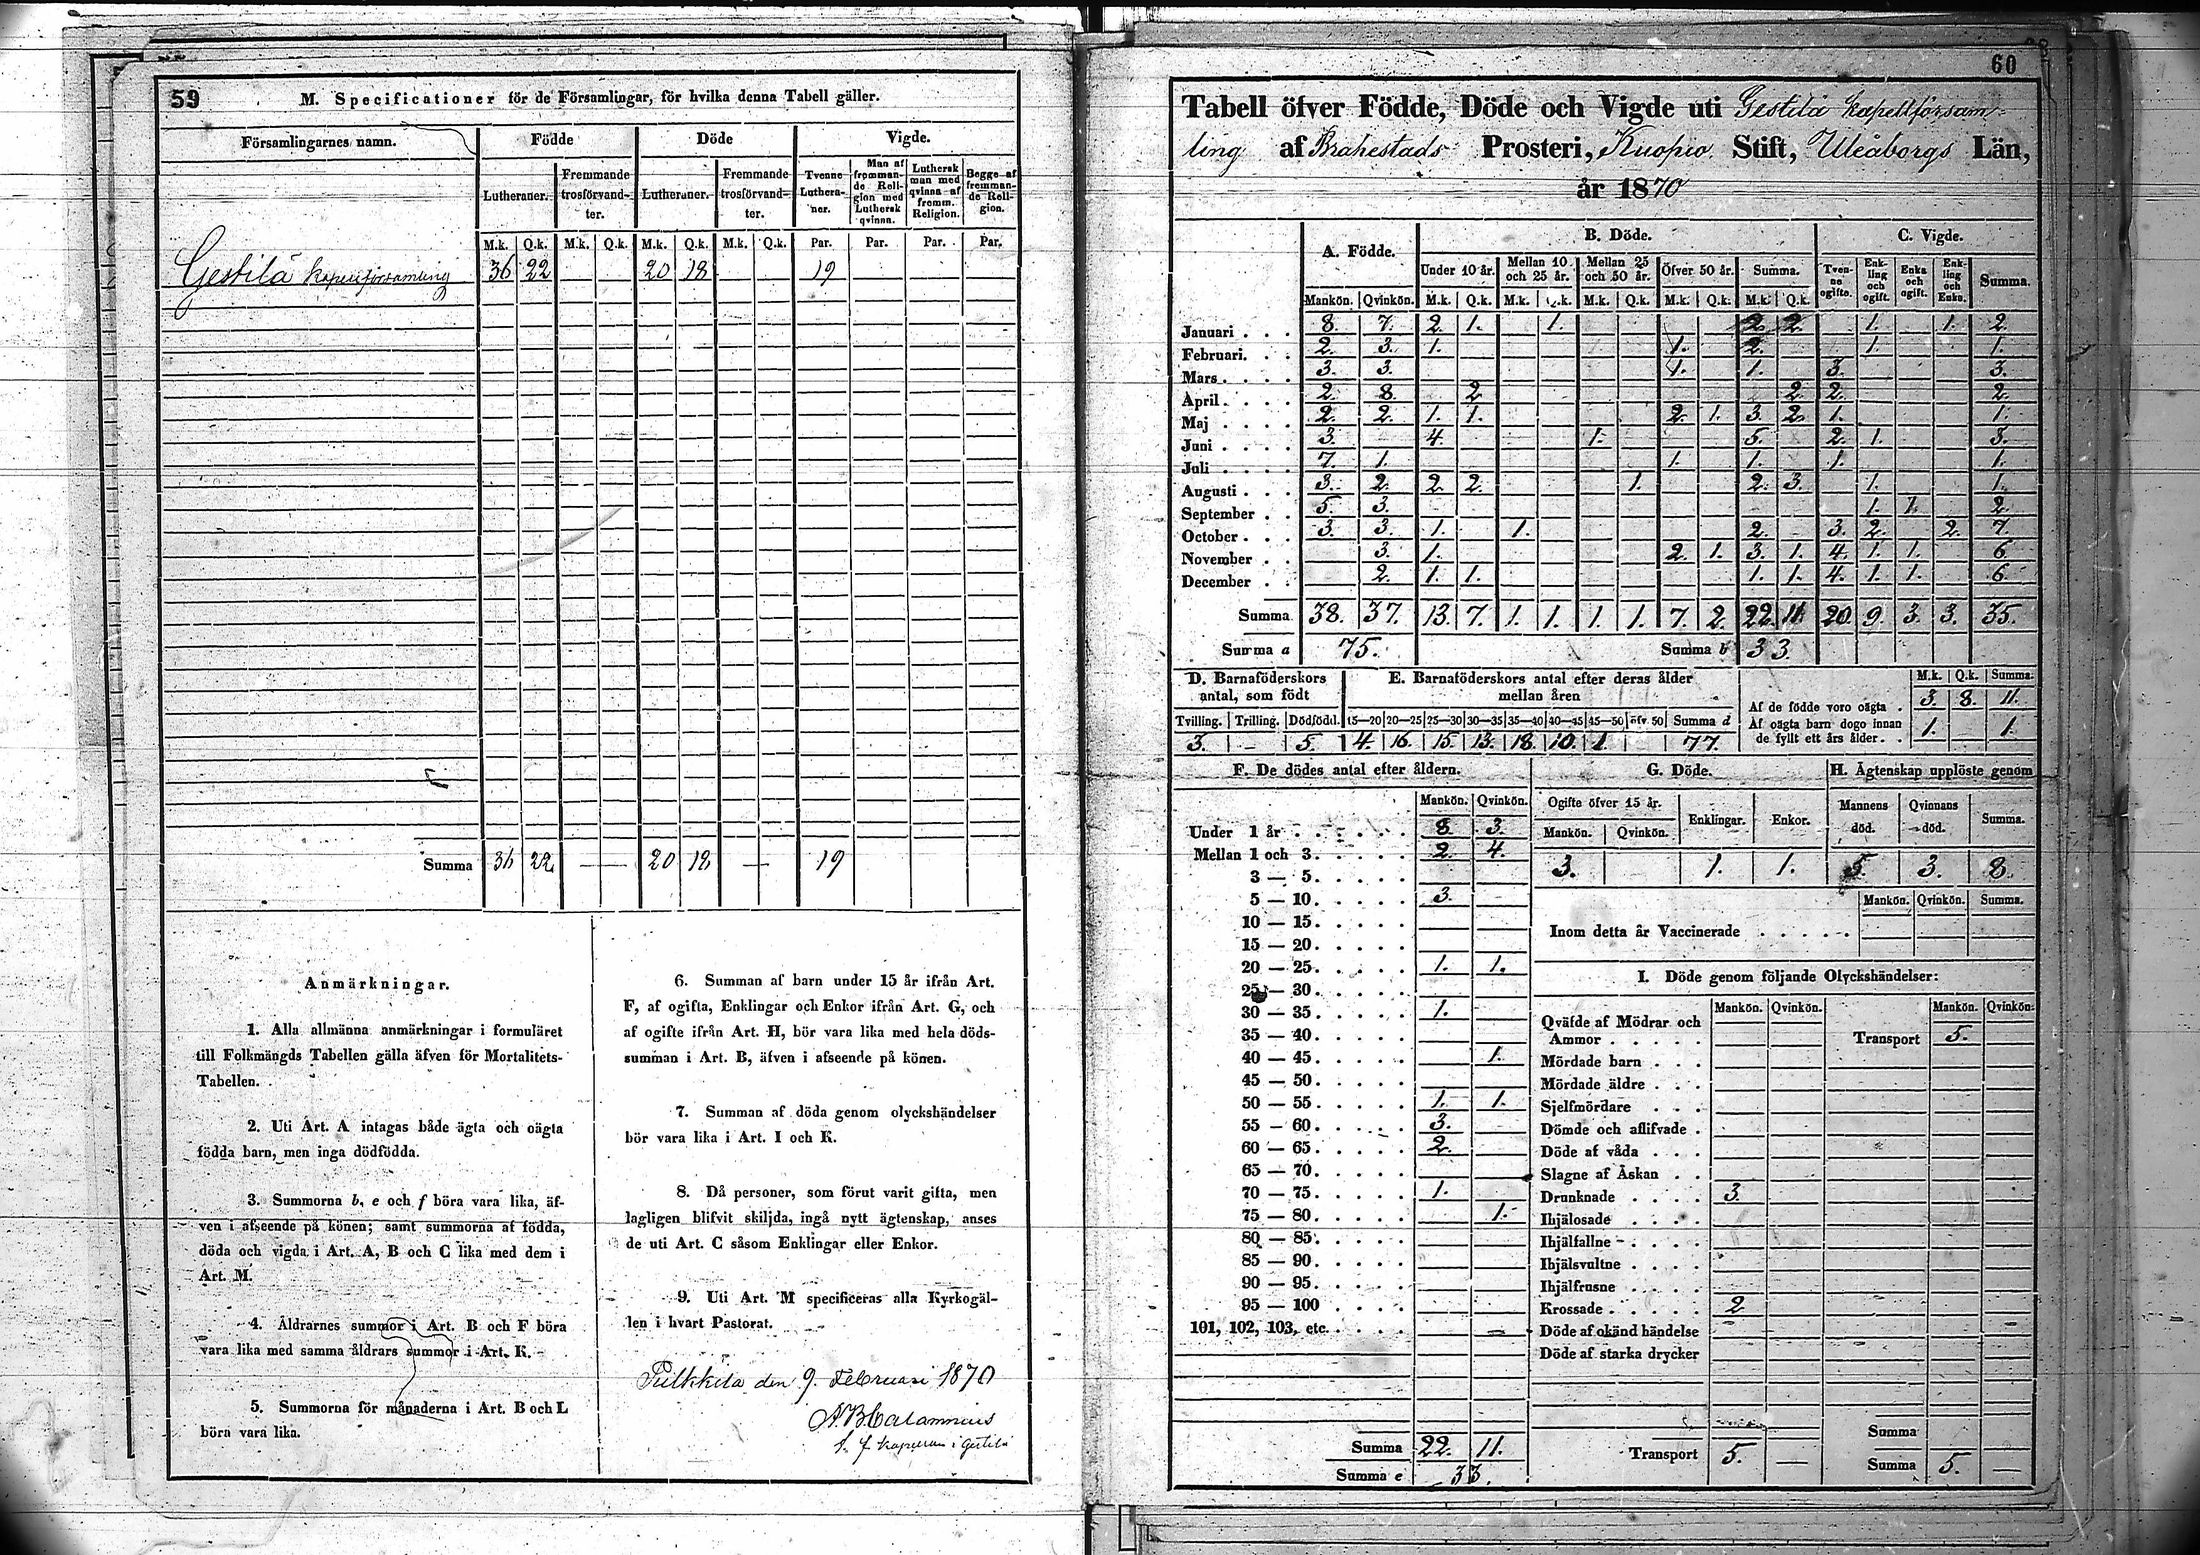 59
M. Specificationer för de Församlingar, för hvilka denna Tabell gäller.
Församlingarnes namn. Födde Döde Vigde.
Lutheraner. Fremmande trosförvandter. Lutheraner. Fremmande trosförvandter. Tvenne Lutheraner. Man af fremmande Religion med Luthersk qvinna. Luthersk man med qvinna af fremm. Religion. Begge af fremmande Religion.
M.k. Q.k. M.k. Q.k. M.k. Q.k. M.k. Q.k. Par. Par. Par. Par.
Gestilä kapellförsamling 36 22 20 18 19
Summa 36 22 — — 20 18 — 19
Anmärkningar.
1. Alla allmänna anmärkningar i formuläret
till Folkmängds Tabellen gälla äfven för Mortalitets-
Tabellen.
2. Uti Art. A intagas både ägta och oägta
födda barn, men inga dödfödda.
3. Summorna b, e och f böra vara lika, äf-
ven i afseende på könen; samt summorna af födda,
döda och vigda i Art. A, B och C lika med dem i
Art. M.
4. Åldrarnes summor i Art. B och F böra
vara lika med samma åldrars summor i Art. K.
5. Summorna för månaderna i Art. B och L
böra vara lika.
6. Summan af barn under 15 år ifrån Art.
F, af ogifta, Enklingar och Enkor ifrån Art. G, och
af ogifte ifrån Art. H, bör vara lika med hela döds-
summan i Art. B, äfven i afseende på könen.
7. Summan af döda genom olyckshändelser
bör vara lika i Art. I och K.
8. Då personer, som förut varit gifta, men
lagligen blifvit skiljda, ingå nytt ägtenskap, anses
de uti Art. C såsom Enklingar eller Enkor.
9. Uti Art. M specificeras alla Kyrkogäl-
len i hvart Pastorat.
Pulkkila den 9. Februari 1870
A B Calamnius
Gestilä
60
Tabell öfver Födde, Döde och Vigde uti Gestilä kapellförsam-
ling af Brahestads Prosteri, Kuopio Stift, Uleåborgs Län,
år 1870
A. Födde. B. Döde. C. Vigde.
Under 10 år. Mellan 10 och 25 år. Mellan 25 och 50 år. Öfver 50 år. Summa. Tvenne ogifte. Enkling och ogift. Enka och ogift. Enkling och Enka. Summa.
Mankön. Qvinkön. M.k. Q.k. M.k. Q.k. M.k. Q.k. M.k. Q.k. M.k. Q.k.
Januari . . . 8. 7. 2. 1. 1. 2. 2. 1. 1. 2.
Februari. . . 2. 3. 1. 1. 2. 1. 1.
Mars . . . . 3. 3. 1. 1. 3. 3.
April . . . . 2. 8. 2 2. 2. 2.
Maj . . . . 2. 2. 1. 1. 2. 1. 3. 2. 1. 1.
Juni . . . . 3. 4. 1. 5. 2. 1. 3.
Juli . . . . 7. 1. 1. 1. 1. 1.
Augusti . . . 3. 2. 2. 2. 1. 2. 3. 1. 1.
September . . 5. 3. 1. 1. 2.
October . . . 3. 3. 1. 1. 2. 3. 2. 2. 7.
November . . 3. 1. 2. 1. 3. 1. 4. 1. 1. 6.
December . . 2. 1. 1. 1. 1. 4. 1. 1. 6.
Summa 38. 37. 13. 7. 1. 1. 1. 1. 7. 2. 22. 11. 20. 9. 3. 3. 35.
Summa a 75. Summa b 33.
D. Barnaföderskors antal, som födt
Tvilling. Trilling. Dödfödd.
3. – 5.
E. Barnaföderskors antal efter deras ålder mellan åren
15—20 20—25 25—30 30—35 35—40 40—45 45—50 öfv. 50 Summa d
4. 16. 15. 13. 18. 10. 1. 77.
M.k. Q.k. Summa.
Af de födde voro oägta . 3. 8. 11.
Af oägta barn dogo innan
de fyllt ett års ålder . . 1. 1.
F. De dödes antal efter åldern.
Mankön. Qvinkön.
Under 1 år . . . . . . 8. 3.
Mellan 1 och 3. . . . . 2. 4.
3 — 5. . . . .
5 — 10. . . . . 3.
10 — 15. . . . .
15 — 20. . . . .
20 — 25. . . . . 1. 1.
25 — 30. . . . .
30 — 35. . . . . 1.
35 — 40. . . . .
40 — 45. . . . . 1.
45 — 50. . . . .
50 — 55. . . . . 1. 1.
55 — 60. . . . . 3.
60 — 65. . . . . 2.
65 — 70. . . . .
70 — 75. . . . . 1.
75 — 80. . . . . 1.
80 — 85. . . . .
85 — 90. . . . .
90 — 95. . . . .
95 — 100 . . . .
101, 102, 103, etc. . . . .
Summa 22. 11.
Summa e 33.
G. Döde.
Ogifte öfver 15 år. Enklingar. Enkor.
Mankön. Qvinkön.
3. 1. 1.
H. Ägtenskap upplöste genom
Mannens död. Qvinnans död. Summa.
5. 3. 8.
Mankön. Qvinkön. Summa.
Inom detta år Vaccinerade . . . . .
I. Döde genom följande Olyckshändelser:
Mankön. Qvinkön. Mankön. Qvinkön.
Qväfde af Mödrar och
Ammor . . . . . Transport 5.
Mördade barn . . .
Mördade äldre . . .
Sjelfmördare . . .
Dömde och aflifvade .
Döde af våda . . .
Slagne af Åskan . . .
Drunknade . . . . 3.
Ihjälosade . . . .
Ihjälfallne . . . .
Ihjälsvultne . . . .
Ihjälfrusne . . . .
Krossade . . . . . 2
Döde af okänd händelse
Döde af starka drycker
Summa
Transport 5. — Summa 5. —